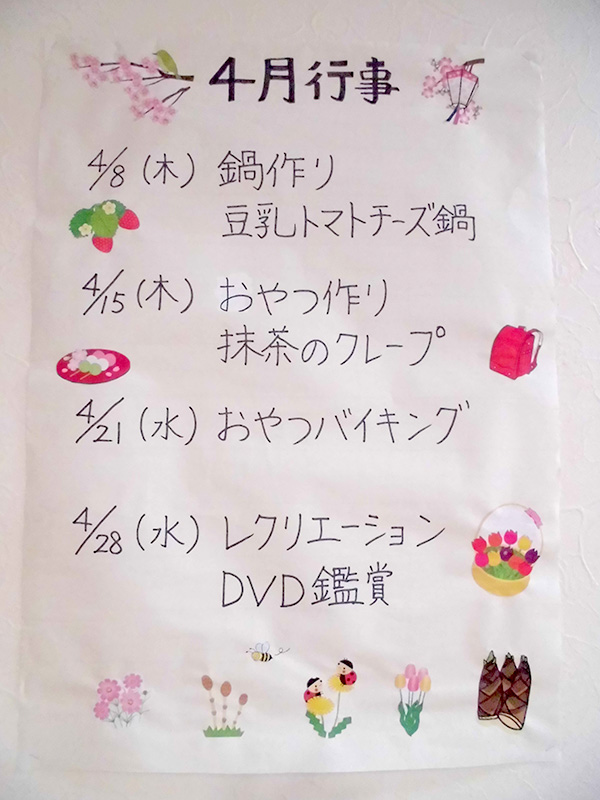 4月行事
4/8(木) 鍋作り
豆乳トマトチーズ鍋
4/15(木) おやつ作り
抹茶のクレープ
4/21(水) おやつバイキング
4/28(水) レクリエーション
DVD鑑賞